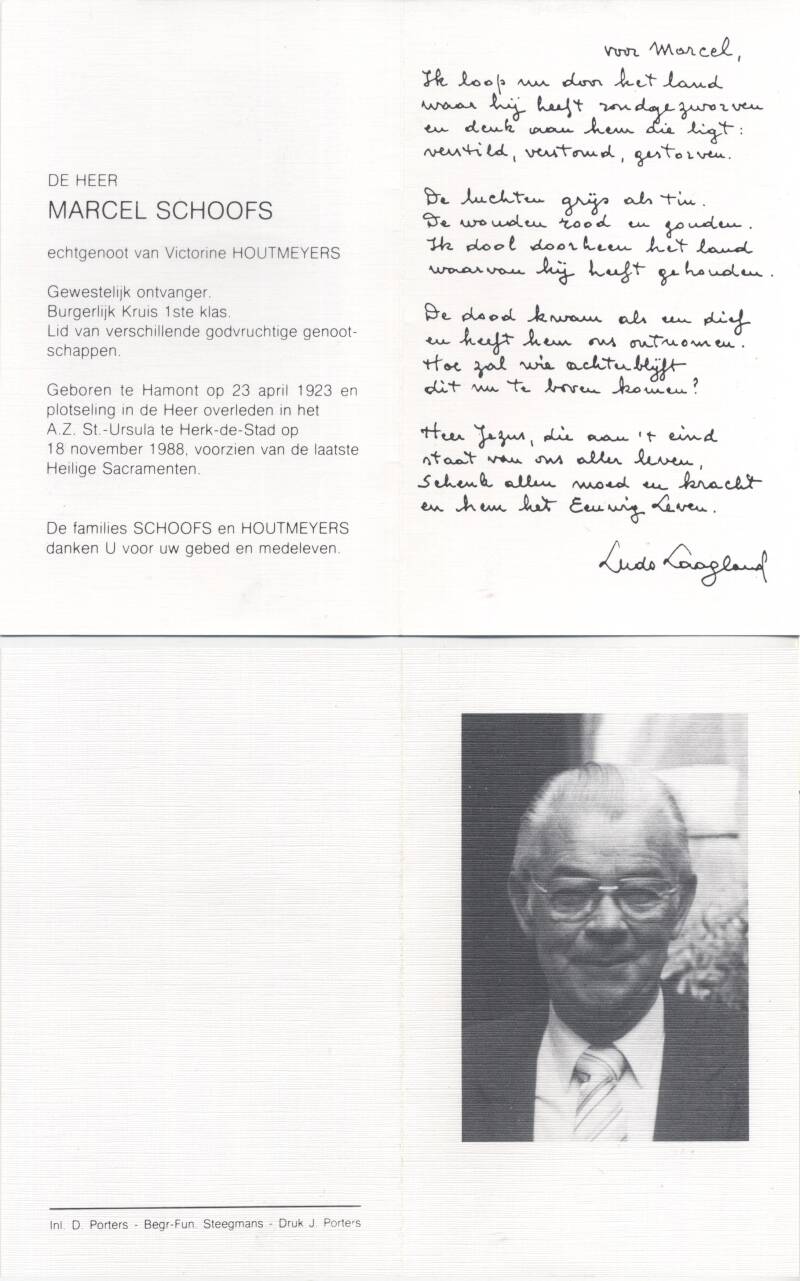 DE HEER
MARCEL SCHOOFS
echtgenoot van Victorine HOUTMEYERS
Gewestelijk ontvanger.
Burgerlijk Kruis 1ste klas.
Lid van verschillende godvruchtige genoot-
schappen.
Geboren te Hamont op 23 april 1923 en
plotseling in de Heer overleden in het
A.Z. St.-Ursula te Herk-de-Stad op
18 november 1988, voorzien van de laatste
Heilige Sacramenten.
De families SCHOOFS en HOUTMEYERS
danken U voor uw gebed en medeleven.
voor Marcel,
Ik loop nu door het land
waar hij heeft rondgezworven
en denk aan hem die ligt:
verstild, verstomd, gestorven.
De luchten grijs als tin.
De wouden rood en gouden.
Ik dool doorheen het land
waarvan hij heeft gehouden.
De dood kwam als een dief
en heeft hem ons ontnomen.
Hoe zal wie achterblijft
dit nu te boven komen?
Heer Jezus, die aan 't eind
staat van ons aller leven,
Schenk allen moed en kracht
en hem het Eeuwig Leven.
Ludo Laagland
Inl. D. Porters - Begr-Fun. Steegmans - Druk J. Porters